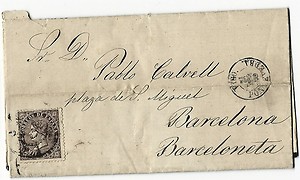 Sr. D.
Pablo Calvell
plaza de S. Miguel
Barcelona
Barceloneta